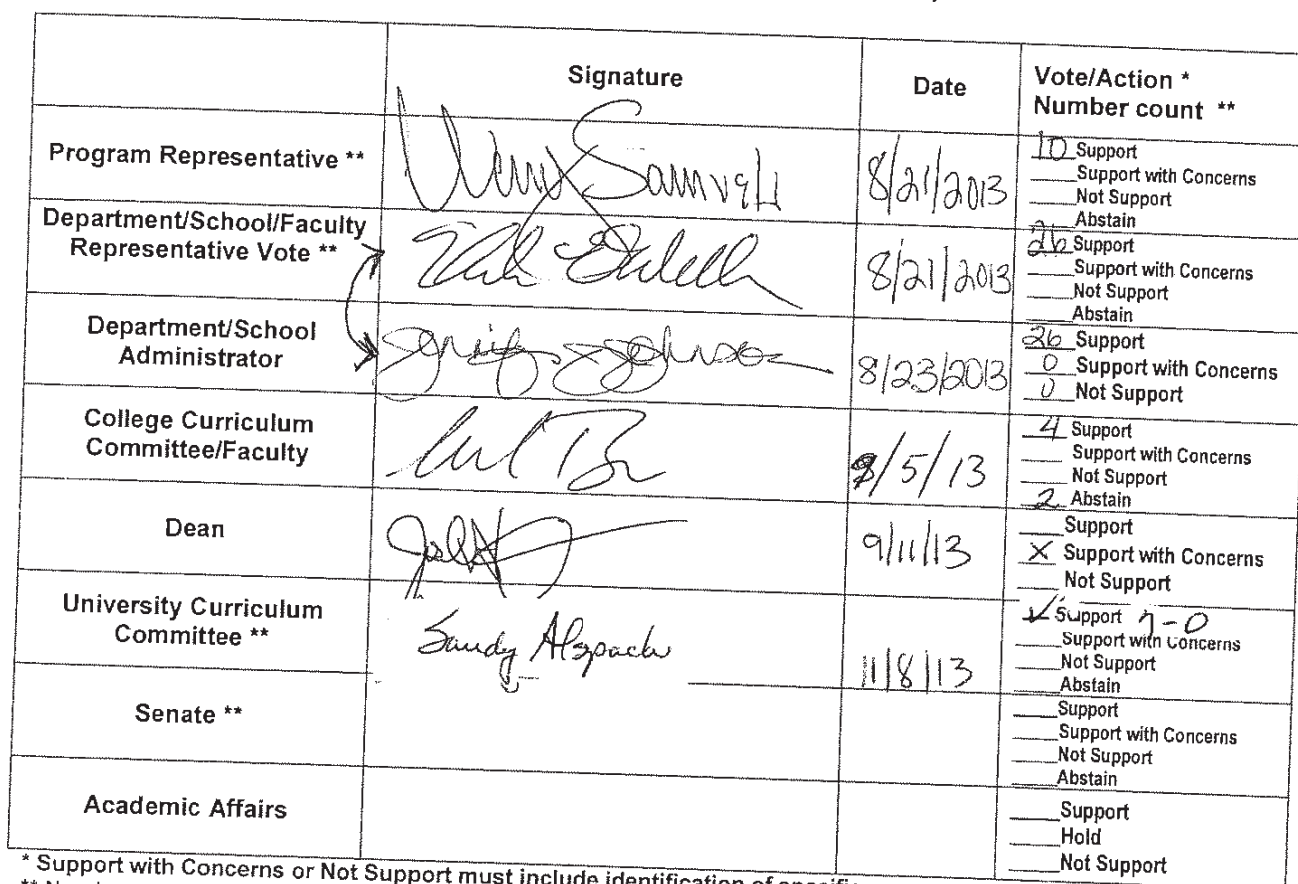 Signature
Date
Vote/Action *
Number count **
Program Representative **
Samuels
8/21/2013
10 Support
Support with Concerns
Not Support
Abstain
Department/School/Faculty
Representative Vote **
8/21/2013
26 Support
Support with Concerns
Not Support
Abstain
Department/School
Administrator
Jennifer Johnson
8/23/2013
26 Support
0 Support with Concerns
0 Not Support
College Curriculum
Committee/Faculty
/5/13
4 Support
Support with Concerns
Not Support
2 Abstain
Dean
9/11/13
Support
X Support with Concerns
Not Support
University Curriculum
Committee **
Sandy Alspach
11/8/13
✓ Support 7-0
Support with Concerns
Not Support
Abstain
Senate **
Support
Support with Concerns
Not Support
Abstain
Academic Affairs
Support
Hold
Not Support
* Support with Concerns or Not Support must include identification of